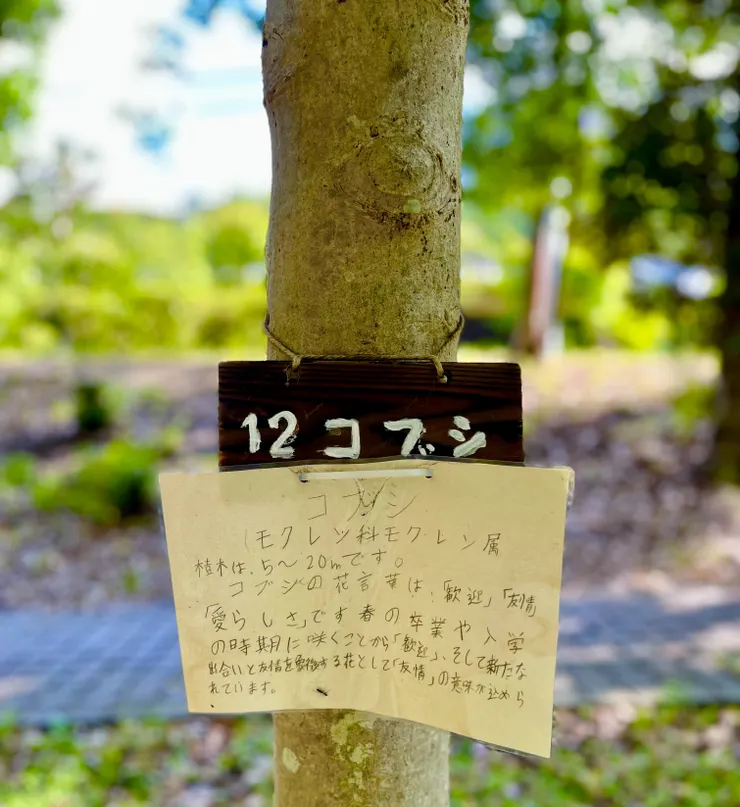 12コブシ
コブシ
(モクレン科モクレン属
植木は、5〜20mです。
コブシの花言葉は、「歓迎」「友情
「愛らしさ」です春の卒業や入学
の時期に咲くことから「歓迎」、そして新たな
出会いと友情を象徴する花として「友情」の意味が込めら
れています。